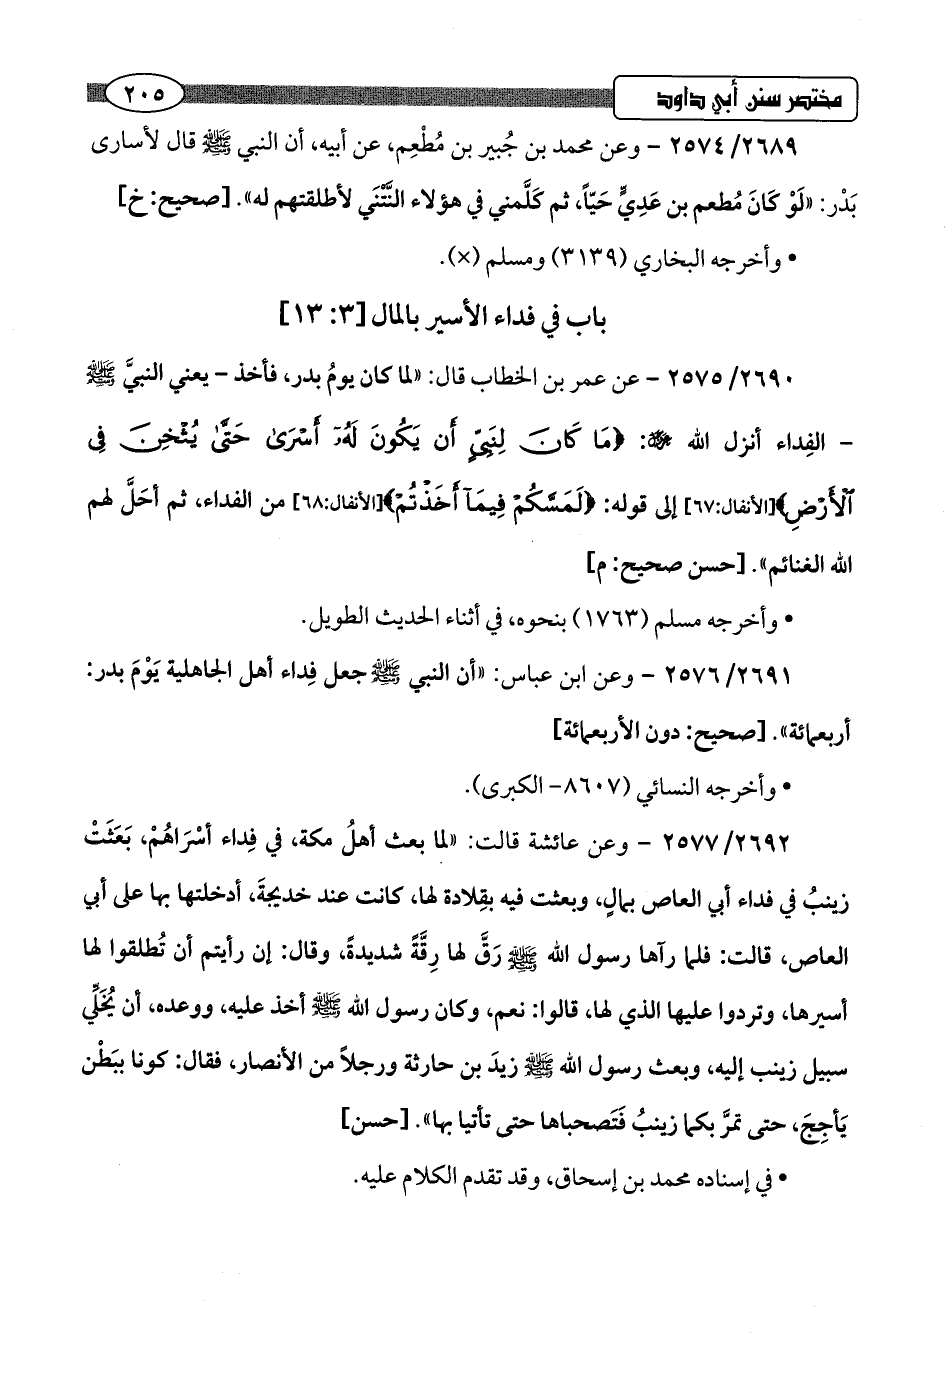 مختصر سنن أبي داود ٢٠٥
٢٥٧٤/٢٦٨٩ - وعن محمد بن جُبير بن مُطْعِم، عن أبيه، أن النبي ﷺ قال لأسارى
بَدْر: «لَوْ كَانَ مُطعم بن عَدِيٍّ حَيّاً، ثم كَلَّمني في هؤلاء النَّتْنَي لأطلقتهم له». [صحيح: خ]
• وأخرجه البخاري (٣١٣٩) ومسلم (×).
باب في فداء الأسير بالمال [٣: ١٣]
٢٥٧٥/٢٦٩٠ - عن عمر بن الخطاب قال: «لما كان يومُ بدر، فأخذ - يعني النبيَّ ﷺ
- الفِداء أنزل الله ﷻ: ﴿مَا كَانَ لِنَبِيٍّ أَن يَكُونَ لَهُۥٓ أَسْرَىٰ حَتَّىٰ يُثْخِنَ فِى
ٱلْأَرْضِ﴾[الأنفال:٦٧] إلى قوله: ﴿لَمَسَّكُمْ فِيمَآ أَخَذْتُمْ﴾[الأنفال:٦٨] من الفداء، ثم أحَلَّ لهم
الله الغنائم». [حسن صحيح: م]
• وأخرجه مسلم (١٧٦٣) بنحوه، في أثناء الحديث الطويل.
٢٥٧٦/٢٦٩١ - وعن ابن عباس: «أن النبي ﷺ جعل فِداء أهل الجاهلية يَوْمَ بدر:
أربعمائة». [صحيح: دون الأربعمائة]
• وأخرجه النسائي (٨٦٠٧- الكبرى).
٢٥٧٧/٢٦٩٢ - وعن عائشة قالت: «لما بعث أهلُ مكة، في فِداء أسْرَاهُمْ، بَعَثَتْ
زينبُ في فداء أبي العاص بمالٍ، وبعثت فيه بقِلادة لها، كانت عند خديجةَ، أدخلتها بها على أبي
العاص، قالت: فلما رآها رسول الله ﷺ رَقَّ لها رِقَّةً شديدةً، وقال: إن رأيتم أن تُطلقوا لها
أسيرها، وتردوا عليها الذي لها، قالوا: نعم، وكان رسول الله ﷺ أخذ عليه، ووعده، أن يُخَلِّي
سبيل زينب إليه، وبعث رسول الله ﷺ زيدَ بن حارثة ورجلاً من الأنصار، فقال: كونا ببَطْن
يَأجِجَ، حتى تمرَّ بكما زينبُ فَتَصحباها حتى تأتيا بها». [حسن]
• في إسناده محمد بن إسحاق، وقد تقدم الكلام عليه.